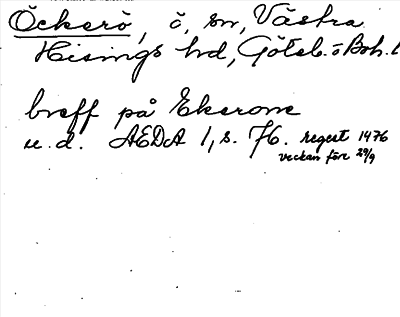 Öckerö, ö, sn, Västra
Hisings hd, Göteb. o Boh. l
breff på Ekerome
u. d. AEDA 1, s. 76. regest 1476
veckan före 29/9